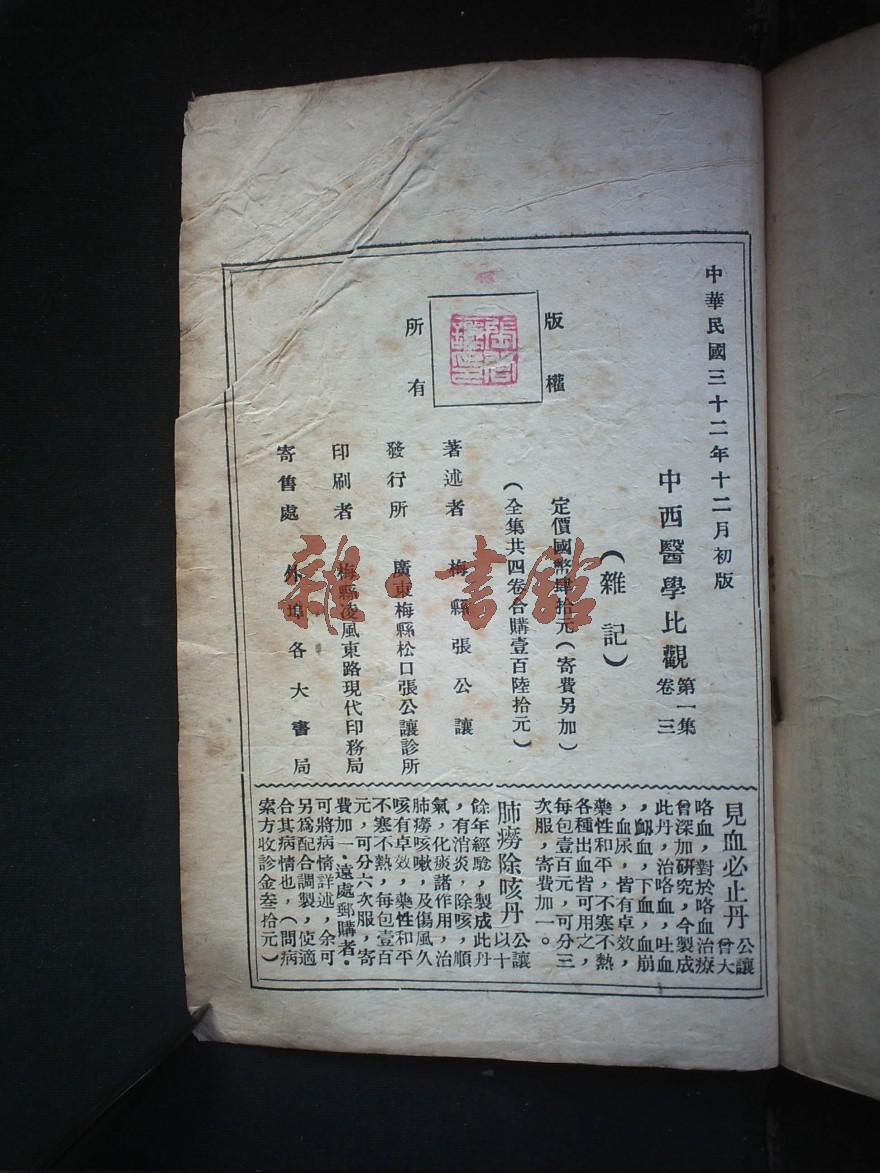 中華民國三十二年十二月初版
中西醫學比觀 第一集
卷三
(雜記)
定價國幣肆拾元(寄費另加)
(全集共四卷合購壹百陸拾元)
版權
所有
著述者 梅縣張公讓
發行所 廣東梅縣松口張公讓診所
印刷者 梅縣凌風東路現代印務局
寄售處 外埠各大書局
見血必止丹 公讓
曾大
咯血,對於咯血治療
曾深加研究,今製成
此丹,治咯血,吐血
,衂血,下血,血崩
,血尿,皆有卓效,
藥性和平,不寒不熱
各種出血皆可用之,
每包壹百元,可分三
次服,寄費加一。
肺癆除咳丹 公讓
以十
餘年經驗,製成此丹
,有消炎,除咳,順
氣,化痰諸作用,治
肺癆咳嗽,及傷風久
咳有卓效,藥性和平
不寒不熱,每包壹百
元,可分六次服,寄
費加一。遠處郵購者.
可將病情詳述,余可
另爲配合調製,使適
合其病情也,(問病
索方收診金叁拾元)
雜·書館